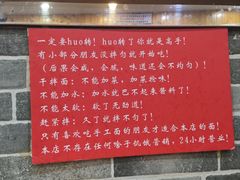 一定要huo转！huo转了你就是高手！
有小部分朋友没拌匀就开始吃！
（后果会咸，会腻，味道还会不均匀）！
干拌面：不能加菜，加菜掉味！
不能加水：加水就巴不起来酱料了！
不能太软：软了无劲道！
赶紧拌：久了就拌不匀了！
只有喜欢吃手工面的朋友才适合本店的面！
本店不存在任何啥子饥饿营销，24小时营业！